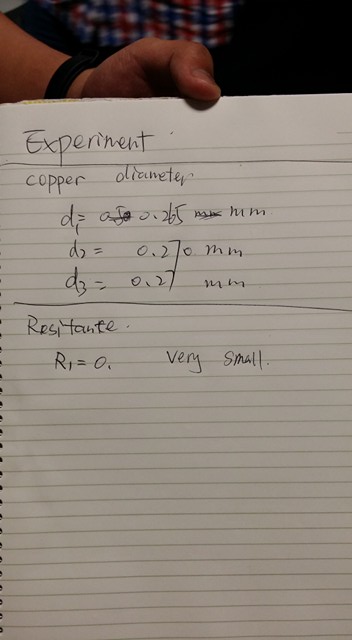 Experiment
copper diameter
d1= 0.265 mm
d2 = 0.270 mm
d3 = 0.27 mm
Resitante.
R1=0. Very small.